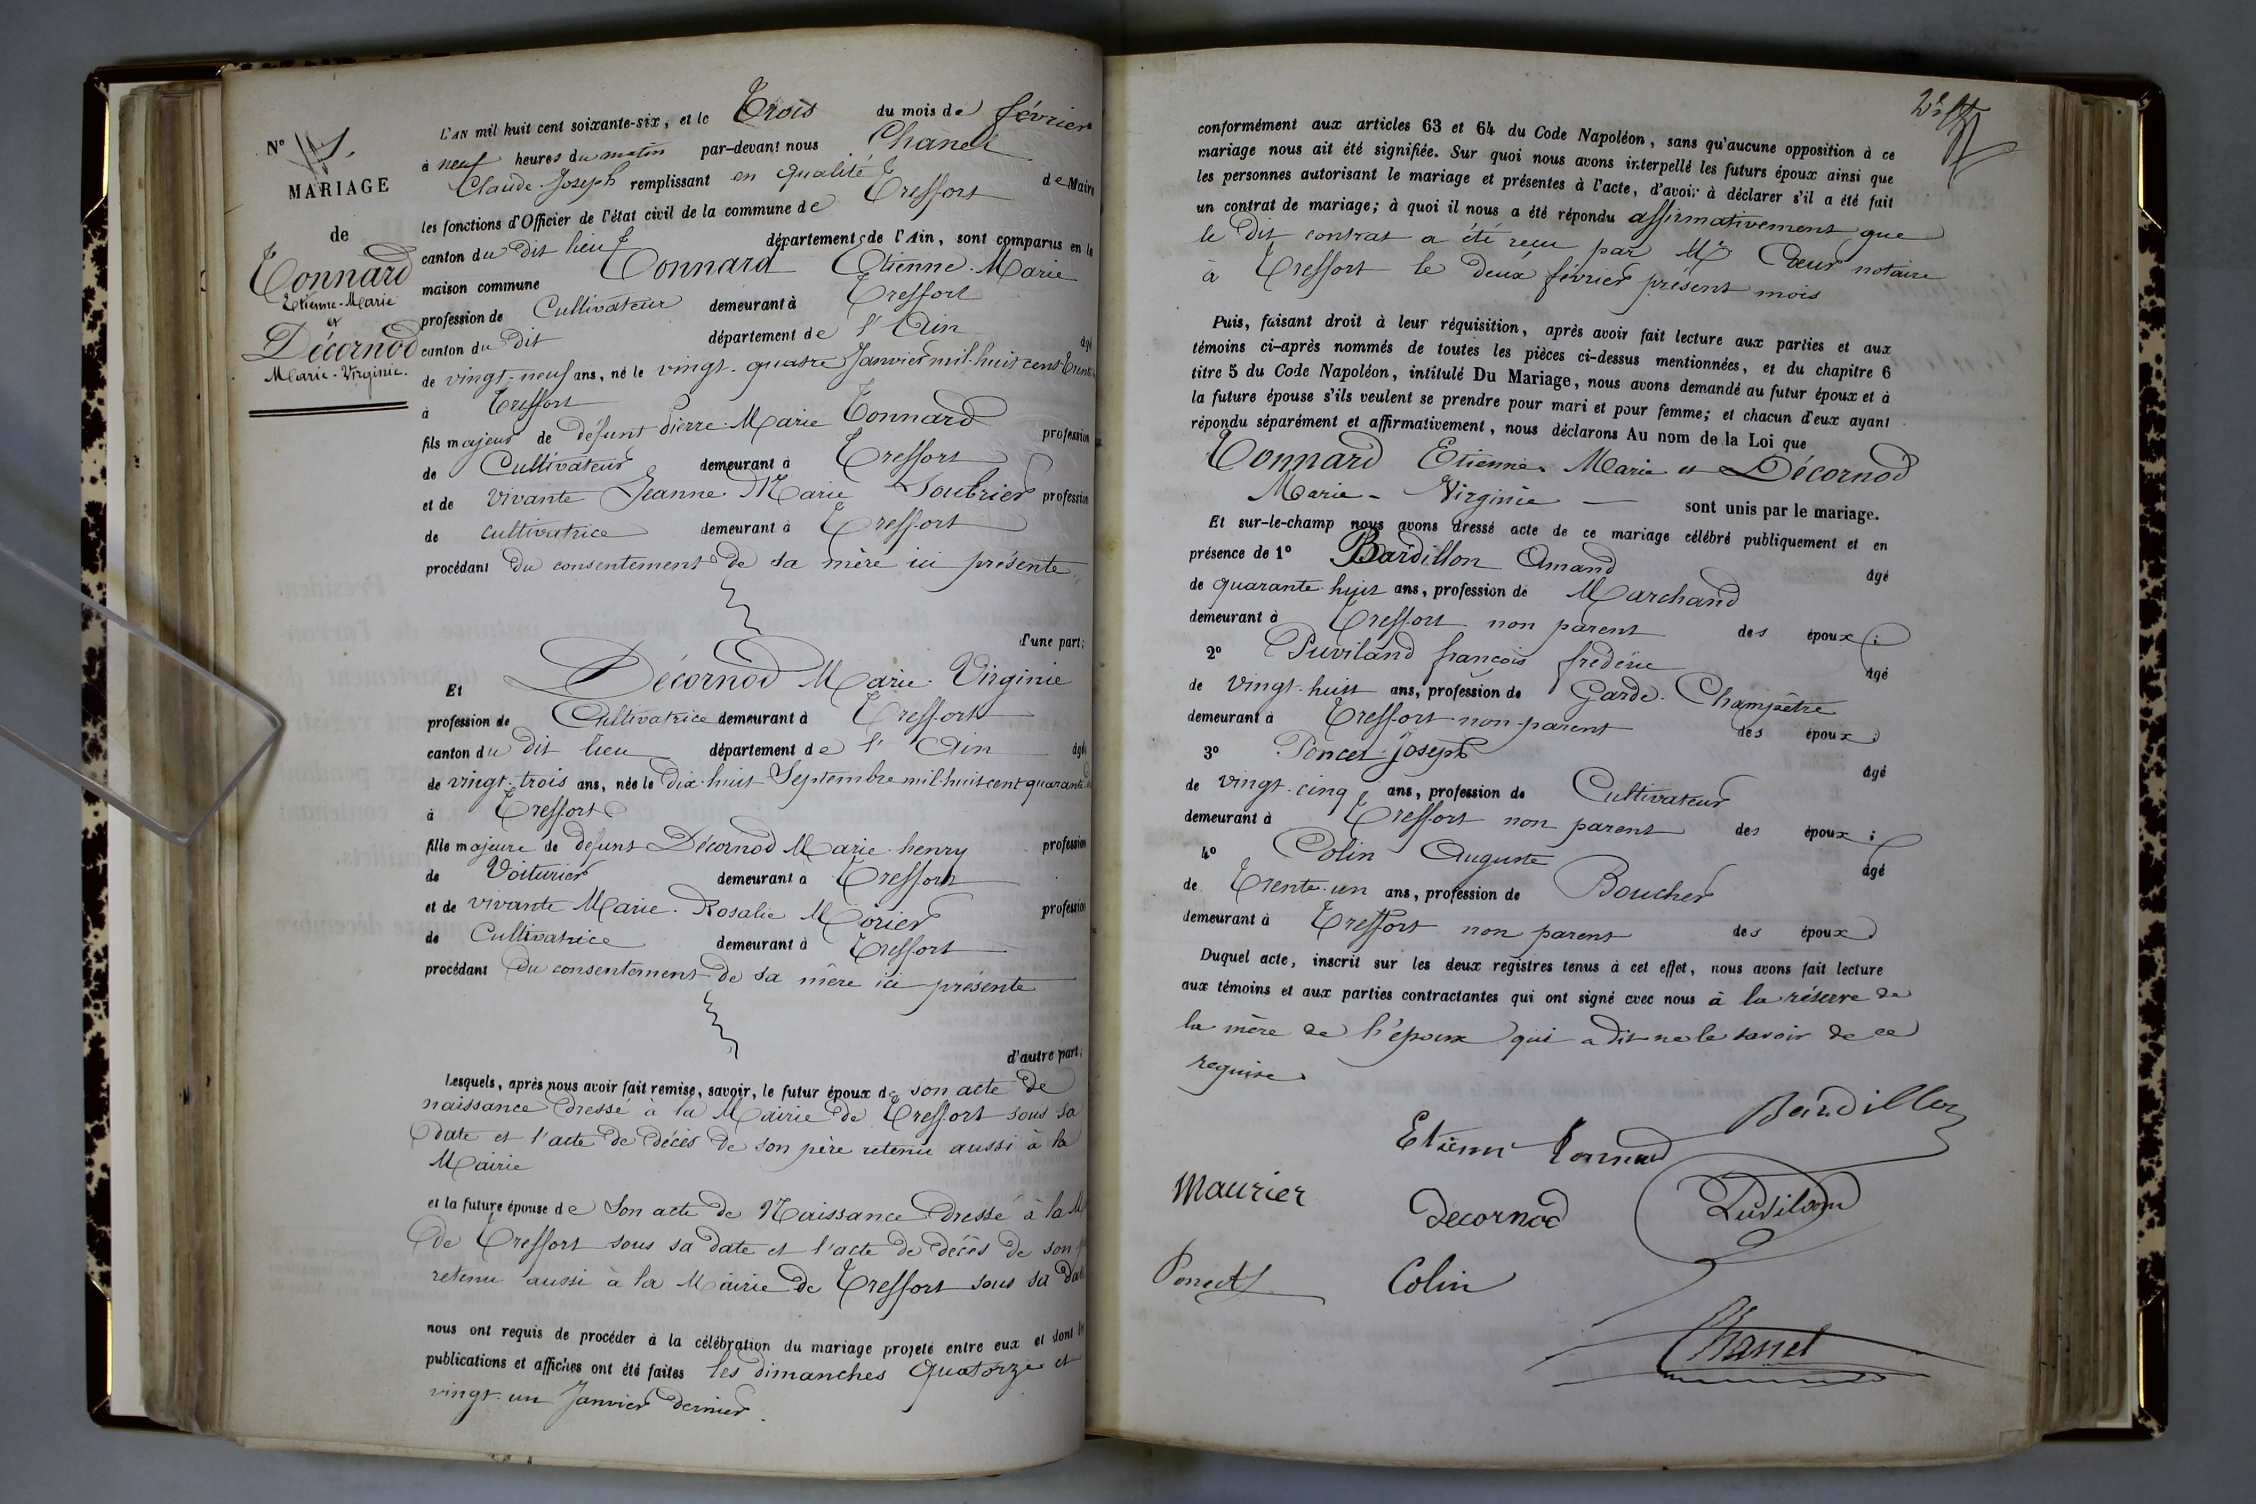 N°
MARIAGE
de
Tonnard
Etienne-Marie
et
Décornod
Marie-Virginie.
L'AN mil huit cent soixante-six, et le Trois du mois de février
à neuf heures du matin par-devant nous Chanel
Claude-Joseph remplissant en qualité de Maire
les fonctions d'Officier de l'état civil de la commune de Treffort
canton du dit lieu département de l'Ain, sont comparus en la
maison commune Tonnard Etienne-Marie
profession de Cultivateur demeurant à Treffort
canton du dit département de l'Ain âgé
de vingt-neuf ans, né le vingt-quatre Janvier mil-huit cent Trente
à Treffort
fils majeur de défunt Pierre-Marie Tonnard profession
de Cultivateur demeurant à Treffort
et de vivante Jeanne Marie Soubrier profession
de cultivatrice demeurant à Treffort
procédant du consentement de sa mère ici présente
d'une part;
Et Décornod Marie-Virginie
profession de Cultivatrice demeurant à Treffort
canton du dit lieu département de l'Ain âgée
de vingt-trois ans, née le dix-huit Septembre mil-huit cent quarante
à Treffort
fille majeure de defunt Décornod Marie-henry profession
de Voiturier demeurant à Treffort
et de vivante Marie-Rosalie Morier profession
de Cultivatrice demeurant à Treffort
procédant du consentement de sa mère ici présente
d'autre part;
Lesquels, après nous avoir fait remise, savoir, le futur époux de son acte de
naissance dressé à la Mairie de Treffort sous sa
date et l'acte de décès de son père retenu aussi à la
Mairie
et la future épouse de Son acte de Naissance dressé à la M
de Treffort sous sa date et l'acte de décès de son
retenu aussi à la Mairie de Treffort sous sa date
nous ont requis de procéder à la célébration du mariage projeté entre eux et dont les
publications et affiches ont été faites les dimanches Quatorze et
vingt-un Janvier dernier.
conformément aux articles 63 et 64 du Code Napoléon, sans qu'aucune opposition à ce
mariage nous ait été signifiée. Sur quoi nous avons interpellé les futurs époux ainsi que
les personnes autorisant le mariage et présentes à l'acte, d'avoir à déclarer s'il a été fait
un contrat de mariage; à quoi il nous a été répondu affirmativement que
le dit contrat a été reçu par Me notaire
à Treffort le deux février présent mois
Puis, faisant droit à leur réquisition, après avoir fait lecture aux parties et aux
témoins ci-après nommés de toutes les pièces ci-dessus mentionnées, et du chapitre 6
titre 5 du Code Napoléon, intitulé Du Mariage, nous avons demandé au futur époux et à
la future épouse s'ils veulent se prendre pour mari et pour femme; et chacun d'eux ayant
répondu séparément et affirmativement, nous déclarons Au nom de la Loi que
Tonnard Etienne Marie et Décornod
Marie-Virginie sont unis par le mariage.
Et sur-le-champ nous avons dressé acte de ce mariage célébré publiquement et en
présence de 1° Bardillon Amand âgé
de quarante-huit ans, profession de Marchand
demeurant à Treffort non parent des époux;
2° Puviland françois frédéric âgé
de Vingt-huit ans, profession de Garde-Champêtre
demeurant à Treffort non-parent des époux;
3° Poncet Joseph âgé
de vingt-cinq ans, profession de Cultivateur
demeurant à Treffort non parent des époux;
4° Colin Auguste âgé
de Trente-un ans, profession de Boucher
demeurant à Treffort non parent des époux
Duquel acte, inscrit sur les deux registres tenus à cet effet, nous avons fait lecture
aux témoins et aux parties contractantes qui ont signé avec nous à la réserve de
la mère de l'époux qui a dit ne le savoir de ce
requise
Bardillon
Etienne Tonnard
Maurier
Decornod
Puviland
Poncet
Colin
Chanel